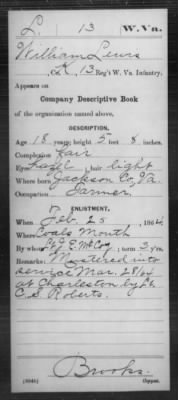 L. 13 W. Va.
William Lewis
Co. K, 13 Reg't W. Va. Infantry.
Appears on
Company Descriptive Book
of the organization named above.
DESCRIPTION.
Age 18 years; height 5 feet 8 inches.
Complexion Fair
Eyes Hazel; hair light
Where born Jackson Co, Va.
Occupation Farmer
ENLISTMENT.
When Feb. 25, 1864.
Where Coals Mouth
By whom J. E. McCoy; term 3 y'rs.
Remarks: Mustered into
service Mar. 28/64
at Charleston by Lt.
C. S. Roberts.
Brooks
Copyist.